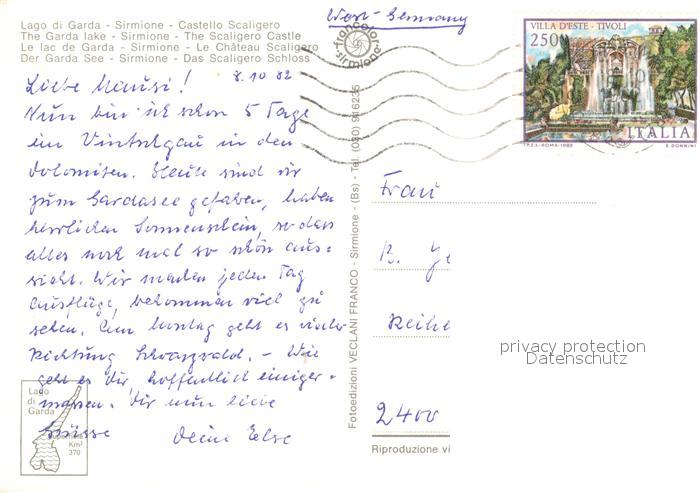 Lago di Garda - Sirmione - Castello Scaligero
The Garda lake - Sirmione - The Scaligero Castle
Le lac de Garda - Sirmione - Le Château Scaligero
Der Garda See - Sirmione - Das Scaligero Schloss
West-Germany
VILLA D'ESTE - TIVOLI
250
ITALIA
I.P.Z.S.-ROMA-1982 E. DONNINI
francolor
sirmione
8.10 82
Liebe Mausi!
Nun bin ich schon 5 Tage
im Vintschgau in den
Dolomiten. Heute sind wir
zum Gardasee gefahren, haben
herrlichen Sonnenschein, so dass
alles noch mal so schön aus-
sieht. Wir machen jeden Tag
Ausflüge, bekommen viel zu
sehen. Am Montag geht es wieder
Richtung Schwarzwald. - Wie
geht es Dir, hoffentlich einiger-
massen. Dir nun liebe
Grüsse Deine Else
Lago
di
Garda
Superficie
Km²
370
Fotoedizioni VECLANI FRANCO - Sirmione - (Bs) - Tel. (030) 916235
Frau
B. Ge
Reihe
2400
privacy protection
Datenschutz
Riproduzione vi